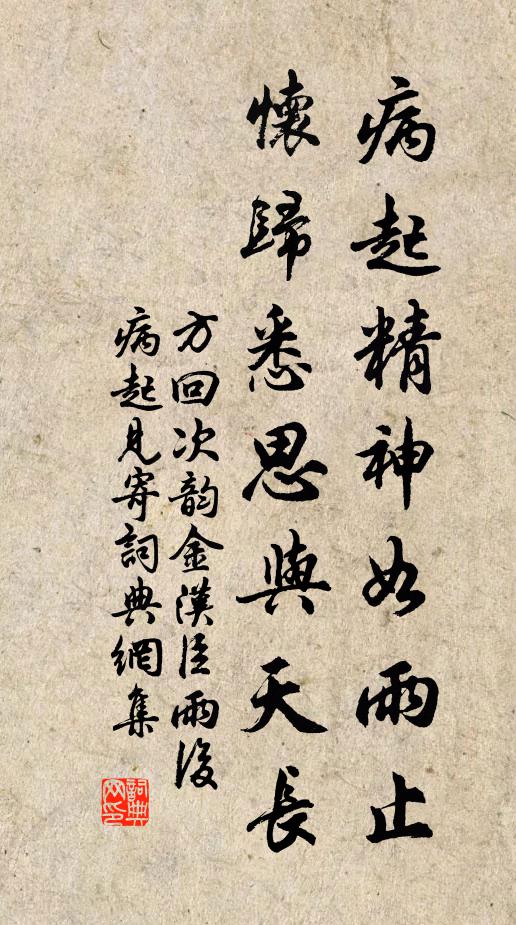 病起精神如雨止
懷歸悉思與天長
方回次韵金漢臣雨後
病起見寄詞典網集
詞典网印